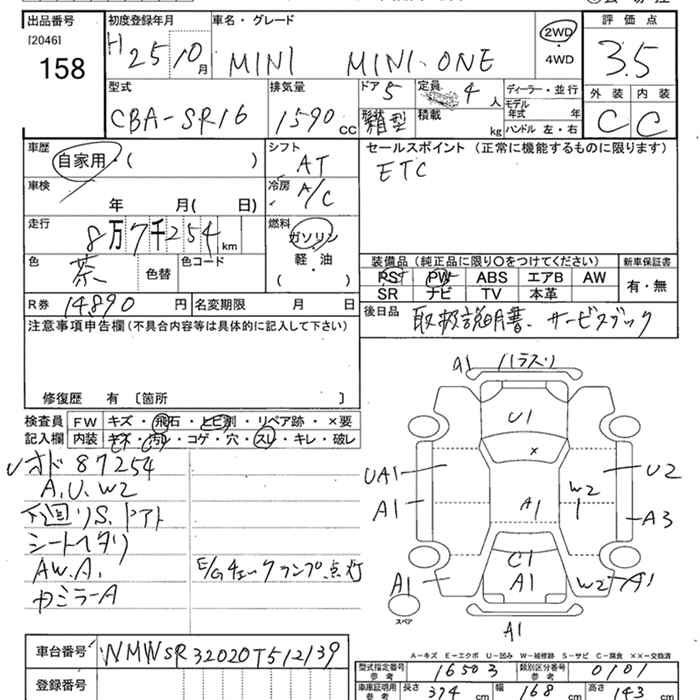 出品番号
[2046]
158
初度登録年月
H 25 10 月
車名・グレード
MINI MINI・ONE
2WD
・
4WD
評価点
3.5
外装 内装
C C
型式
CBA-SR16
排気量
1590 cc
ドア 5
形状 箱型
定員 4 人
積載 kg
ディーラー・並行
モデル年式 年
ハンドル 左・右
車歴
自家用・( )
シフト
AT
セールスポイント (正常に機能するものに限ります)
ETC
車検
年 月( 日)
冷房
A/C
走行
8万7千254 km
燃料
ガソリン
軽・油
( )
色
茶 色替
色コード
装備品 (純正品に限り○をつけてください)
PS PW ABS エアB AW
SR ナビ TV 本革
新車保証書
有・無
R券 14,890 円
名変期限 月 日
後日品 取扱説明書、サービスブック
注意事項申告欄 (不具合内容等は具体的に記入して下さい)
修復歴 有 〔箇所 〕
検査員
記入欄
FW キズ・飛石・トビ割・リペア跡・×要
内装 キズ・汚レ・コゲ・穴・スレ・キレ・破レ
オド 87254
A.U.W2
下廻リS.
シートヘタリ
AW.A.
カミラーA
E/Gチェックランプ点灯
A1 ハラスリ
U1
×
UA1
A1
U2
W2
A1
A3
C1
A1
A1
W2 A1
スペア
A1
A-キズ E-エクボ U-凹み W-補修跡 S-サビ C-腐食 ××-交換済
車台番号 WMWSR32020T512139
登録番号
型式指定番号
参考 16503
類別区分番号
参考 0101
車庫証明用
参考 長さ 374 cm 幅 168 cm 高さ 143 cm